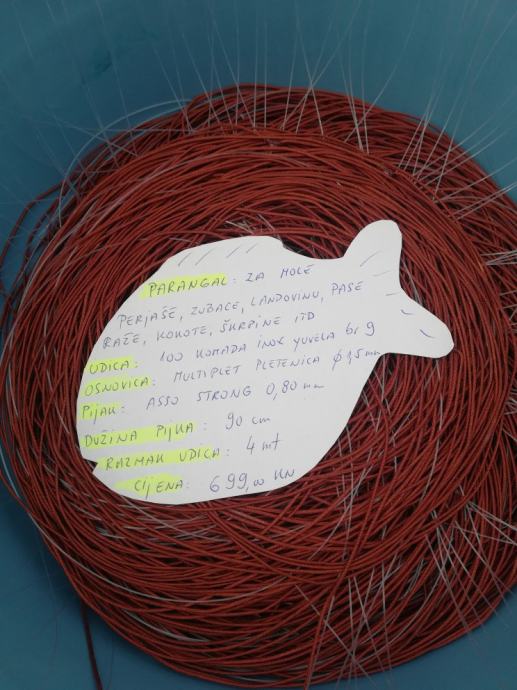 PARANGAL: ZA MOLE
PERJAŠE, ZUBACE, LANDOVINU, PASE
RAŽE, KOKOTE, ŠKRPINE ITD
UDICA: 100 KOMADA INOX YUVELA br 9
OSNOVICA: MULTIPLET PLETENICA ϕ 1,5mm
PIJAK: ASSO STRONG 0,80 mm
DUŽINA PIJKA: 90 cm
RAZMAK UDICA: 4 mt
CIJENA: 699,00 KN